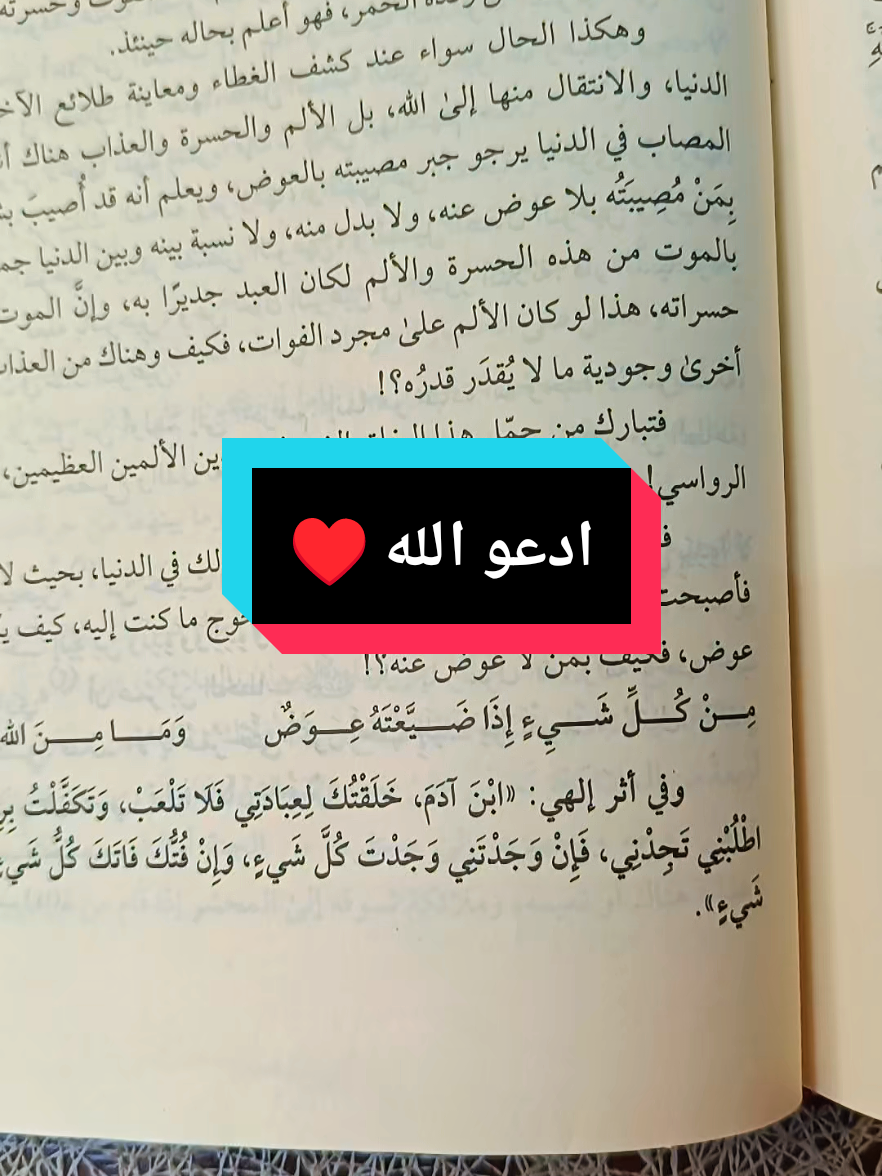 وهكذا الحال سواء عند كشف الغطاء ومعاينة طلائع
الدنيا، والانتقال منها إلىٰ الله، بل الألم والحسرة والعذاب هناك
المصاب في الدنيا يرجو جبر مصيبته بالعوض، ويعلم أنه قد أُصيبَ
بِمَنْ مُصِيبَتُه بلا عوض عنه، ولا بدل منه، ولا نسبة بينه وبين الدنيا
بالموت من هذه الحسرة والألم لكان العبد جديرًا به، وإنَّ الموت
حسراته، هذا لو كان الألم علىٰ مجرد الفوات، فكيف وهناك من
أخرىٰ وجودية ما لا يُقدَر قدرُه؟!
فتبارك من حمّل هذا الألمين العظيمين،
الرواسي!
ادعو الله ❤️
في الدنيا، بحيث لا
فأصبحت ما كنت إليه، كيف
عوض، فكيف بمن لا عوض عنه؟!
مِـنْ كُـلِّ شَـيءٍ إِذَا ضَـيَّعْتَهُ عِـوَضٌ وَمَـا مِـنَ الله
وفي أثر إلهي: «ابْنَ آدَمَ، خَلَقْتُكَ لِعِبَادَتِي فَلَا تَلْعَبْ، وَتَكَفَّلْتُ
اطْلُبْنِي تَجِدْنِي، فَإِنْ وَجَدْتَنِي وَجَدْتَ كُلَّ شَيءٍ، وَإِنْ فُتُّكَ فَاتَكَ كُلُّ
شَيءٍ».